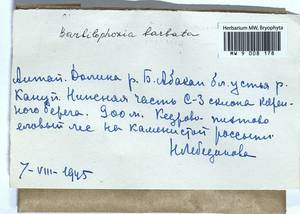 Herbarium MW, Bryophyta
MW 9 008 178
Barbilophozia barbata
Алтай. Долина р. Б. Абакан бл. устья р.
Нижняя часть С-З склона корен-
ного берега. 900 м. Кедрово-пихтово
еловый лес на каменистой россыпи
Н Лебединова
7-VIII-1945